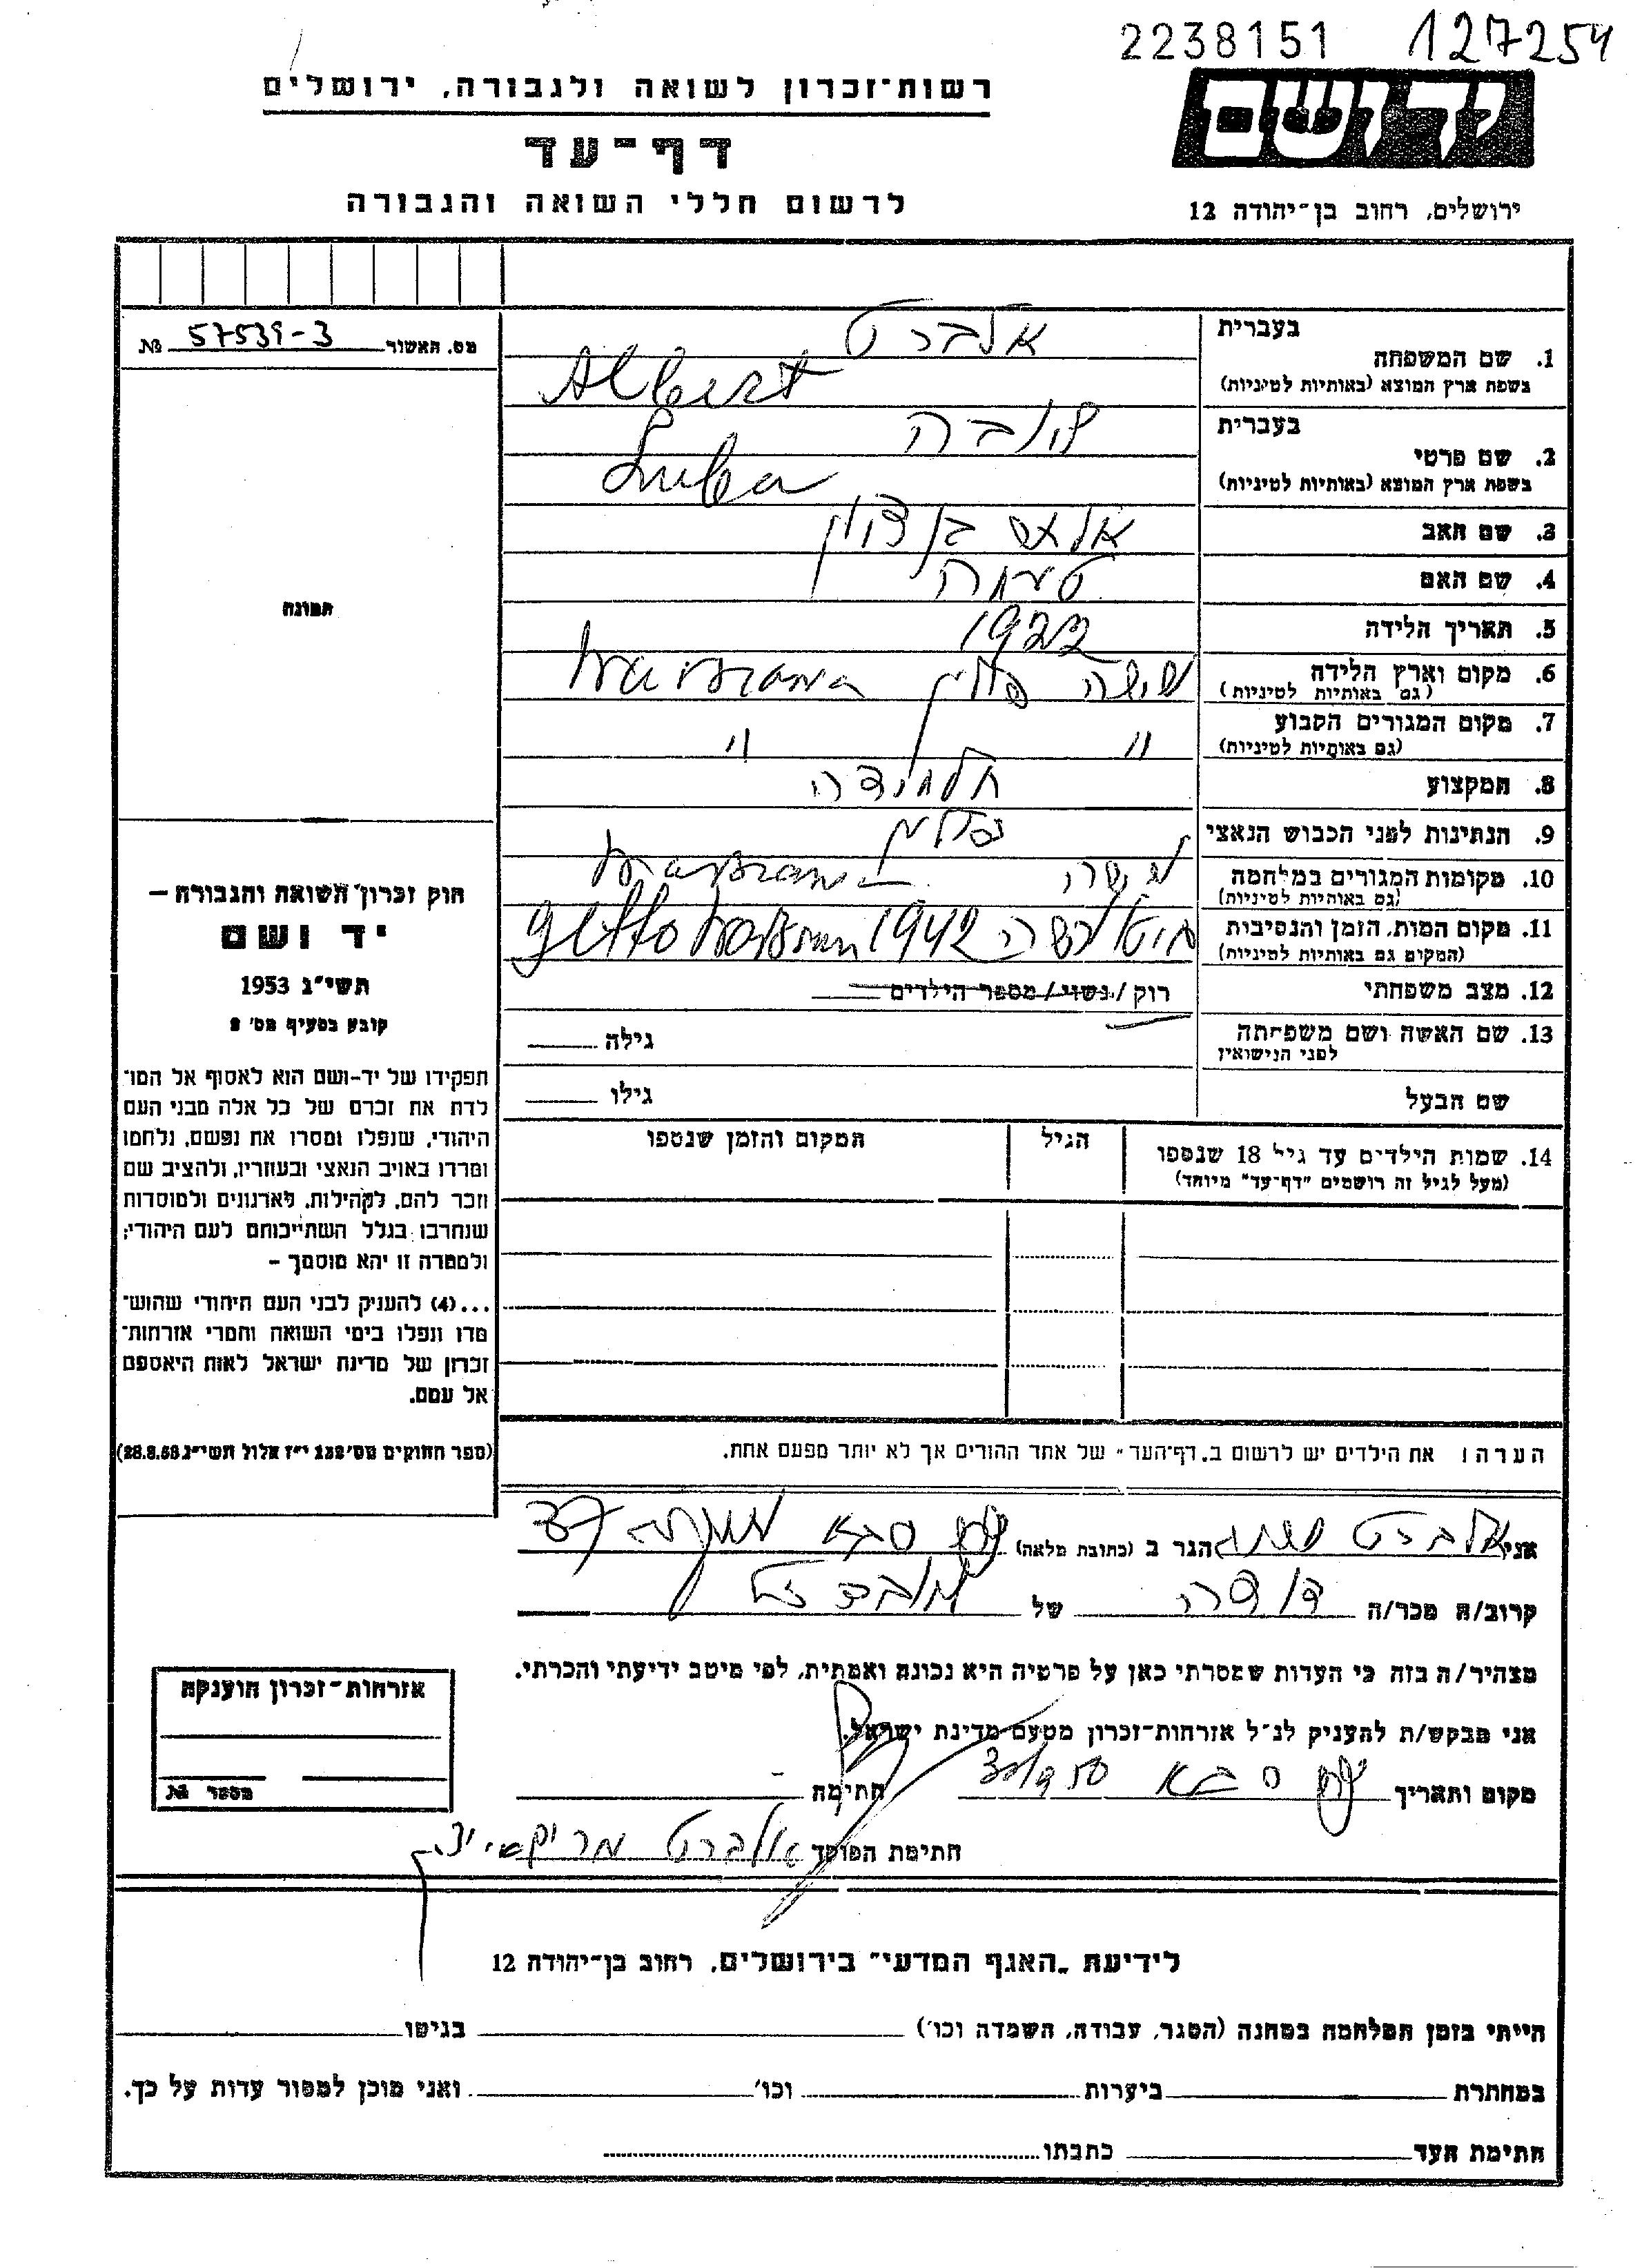 2238151 127254
רשות־זכרון לשואה ולגבורה, ירושלים
ידושם
דף־עד
לרשום חללי השואה והגבורה
ירושלים, רחוב בן־יהודה 12
מס. האשור № 57539-3
תמונה
חוק זכרון השואה והגבורה –
יד ושם
תשי״ג 1953
קובע בסעיף מס׳ 2
תפקידו של יד-ושם הוא לאסוף אל המו־
לדת את זכרם של כל אלה מבני העם
היהודי, שנפלו ומסרו את נפשם, נלחמו
ומרדו באויב הנאצי ובעוזריו, ולהציב שם
וזכר להם, לקהילות, לארגונים ולמוסדות
שנחרבו בגלל השתייכותם לעם היהודי;
ולמטרה זו יהא מוסמך –
...(4) להעניק לבני העם היהודי שהוש־
מדו ונפלו בימי השואה והמרי אזרחות־
זכרון של מדינת ישראל לאות היאספם
אל עמם.
(ספר החוקים מס׳ 132 י״ז אלול תשי״ג 28.8.53)
בעברית אלברט
1. שם המשפחה
בשפת ארץ המוצא (באותיות לטיניות) Albert
בעברית לובה
2. שם פרטי
בשפת ארץ המוצא (באותיות לטיניות) Luba
3. שם האב בן ציון
4. שם האם
5. תאריך הלידה 1922
6. מקום וארץ הלידה פולין Warszawa
(גם באותיות לטיניות)
7. מקום המגורים הקבוע " "
(גם באותיות לטיניות)
8. המקצוע תלמידה
9. הנתינות לפני הכבוש הנאצי פולין
10. מקומות המגורים במלחמה ורשה Warszawa
(גם באותיות לטיניות)
11. מקום המות, הזמן והנסיבות גיטו ורשה 1942 getto Warszawa
(המקום גם באותיות לטיניות)
12. מצב משפחתי רוק / נשוי / מספר הילדים
13. שם האשה ושם משפחתה גילה
לפני הנישואין
שם הבעל גילו
14. שמות הילדים עד גיל 18 שנספו הגיל המקום והזמן שנספו
(מעל לגיל זה רושמים "דף־עד" מיוחד)
הערה: את הילדים יש לרשום ב„דף־העד״ של אחד ההורים אך לא יותר מפעם אחת.
אני אלברט הגר ב (כתובת מלאה) כפר סבא 37
קרוב/ה מכר/ה דודה של
מצהיר/ה בזה כי העדות שמסרתי כאן על פרטיה היא נכונה ואמתית, לפי מיטב ידיעתי והכרתי.
אני מבקש/ת להעניק לנ״ל אזרחות־זכרון מטעם מדינת ישראל.
מקום ותאריך כפר סבא חתימה
חתימת הפוקד אלברט
אזרחות־זכרון הוענקה
מספר №
לידיעת „האגף המדעי״ בירושלים, רחוב בן־יהודה 12
הייתי בזמן המלחמה במחנה (הסגר, עבודה, השמדה וכו׳) בגיטו
במחתרת ביערות וכו׳ ואני מוכן למסור עדות על כך.
חתימת העד כתבתו